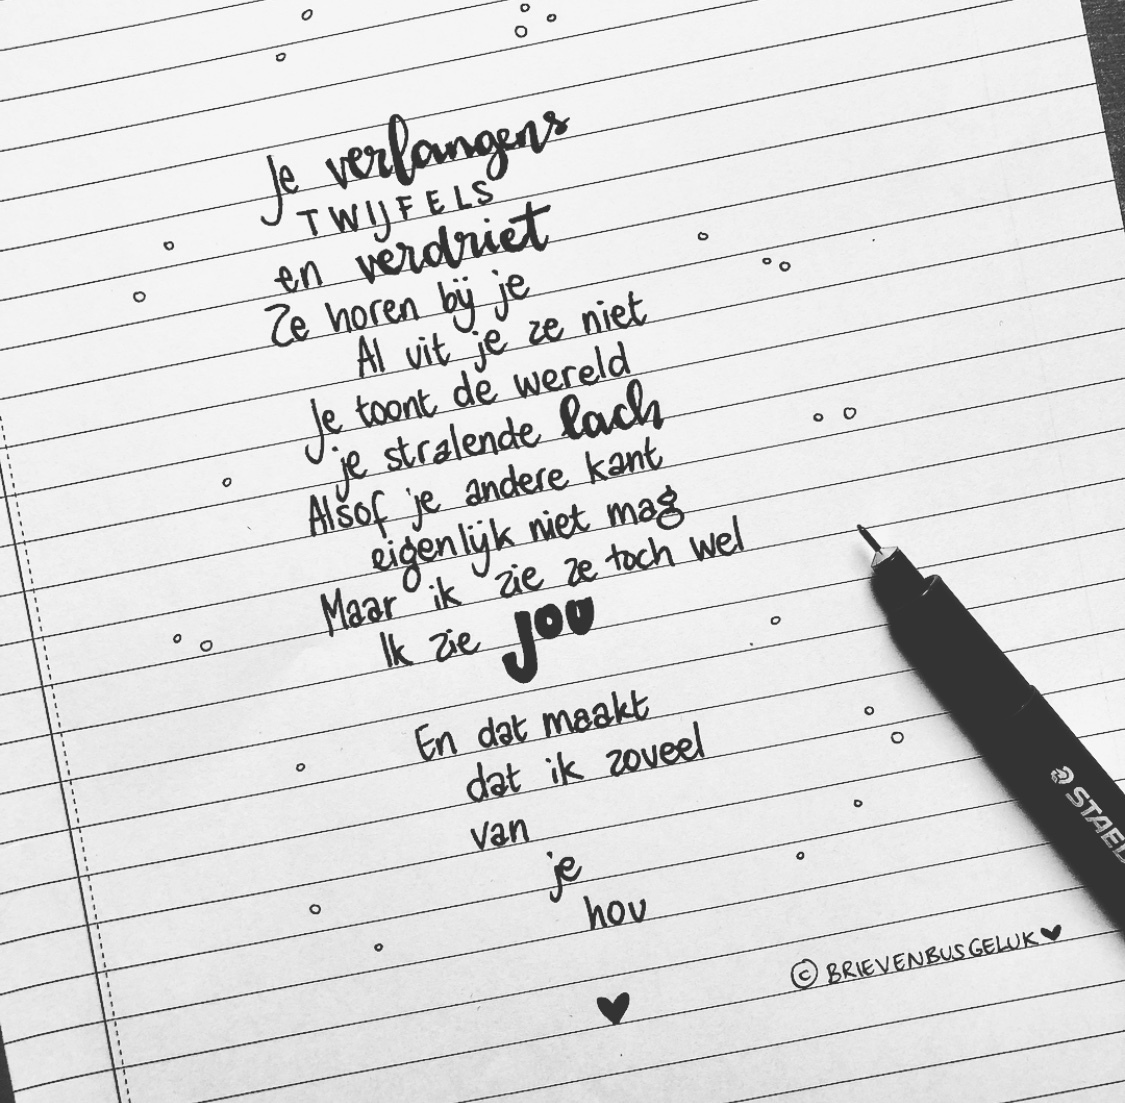 Je verlangens
TWIJFELS
en verdriet
Ze horen bij je
Al uit je ze niet
Je toont de wereld
je stralende lach
Alsof je andere kant
eigenlijk niet mag
Maar ik zie ze toch wel
Ik zie jou
En dat maakt
dat ik zoveel
van
je
hou
© BRIEVENBUSGELUK
STAED